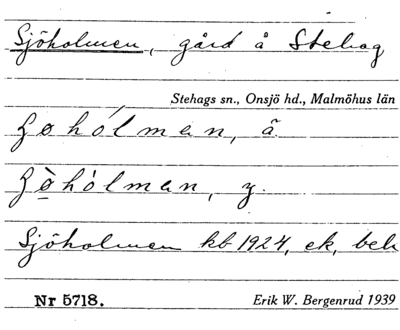 Sjöholmen, gård å Stehag
Stehags sn., Onsjö hd., Malmöhus län
ʃøhólmen, ä.
ʃø̀hólmen, y.
Sjöholmen kb 1924, ek, bek
Nr 5718. Erik W. Bergenrud 1939